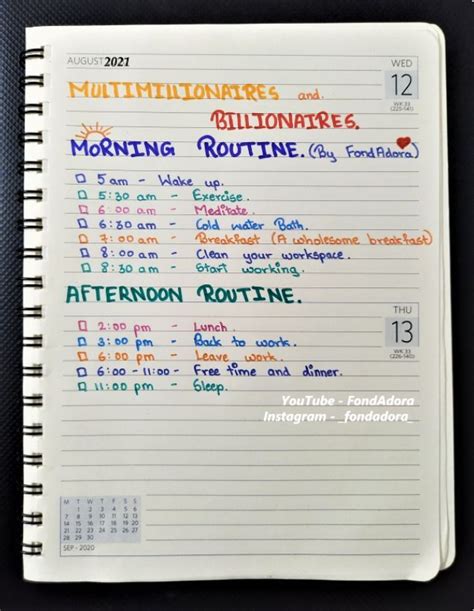 AUGUST 2021
WED
12
WK 33
(225-141)
MULTIMILLIONAIRES and
BILLIONAIRES.
MORNING ROUTINE. (By FondAdora)
5 am - Wake up.
5:30 am - Exercise.
6:00 am - Meditate.
6:30 am - Cold water Bath.
7:00 am - Breakfast (A wholesome breakfast)
8:00 am - Clean your workspace.
8:30 am - Start working.
AFTERNOON ROUTINE.
THU
13
WK 33
(226-140)
2:00 pm - Lunch.
3:00 pm - Back to work.
6:00 pm - Leave work.
6:00 - 11:00 - Free time and dinner.
11:00 pm - Sleep.
YouTube - FondAdora
Instagram - _fondadora_
M T W T F S S
1 2 3 4 5 6
7 8 9 10 11 12 13
14 15 16 17 18 19 20
21 22 23 24 25 26 27
28 29 30
SEP - 2020